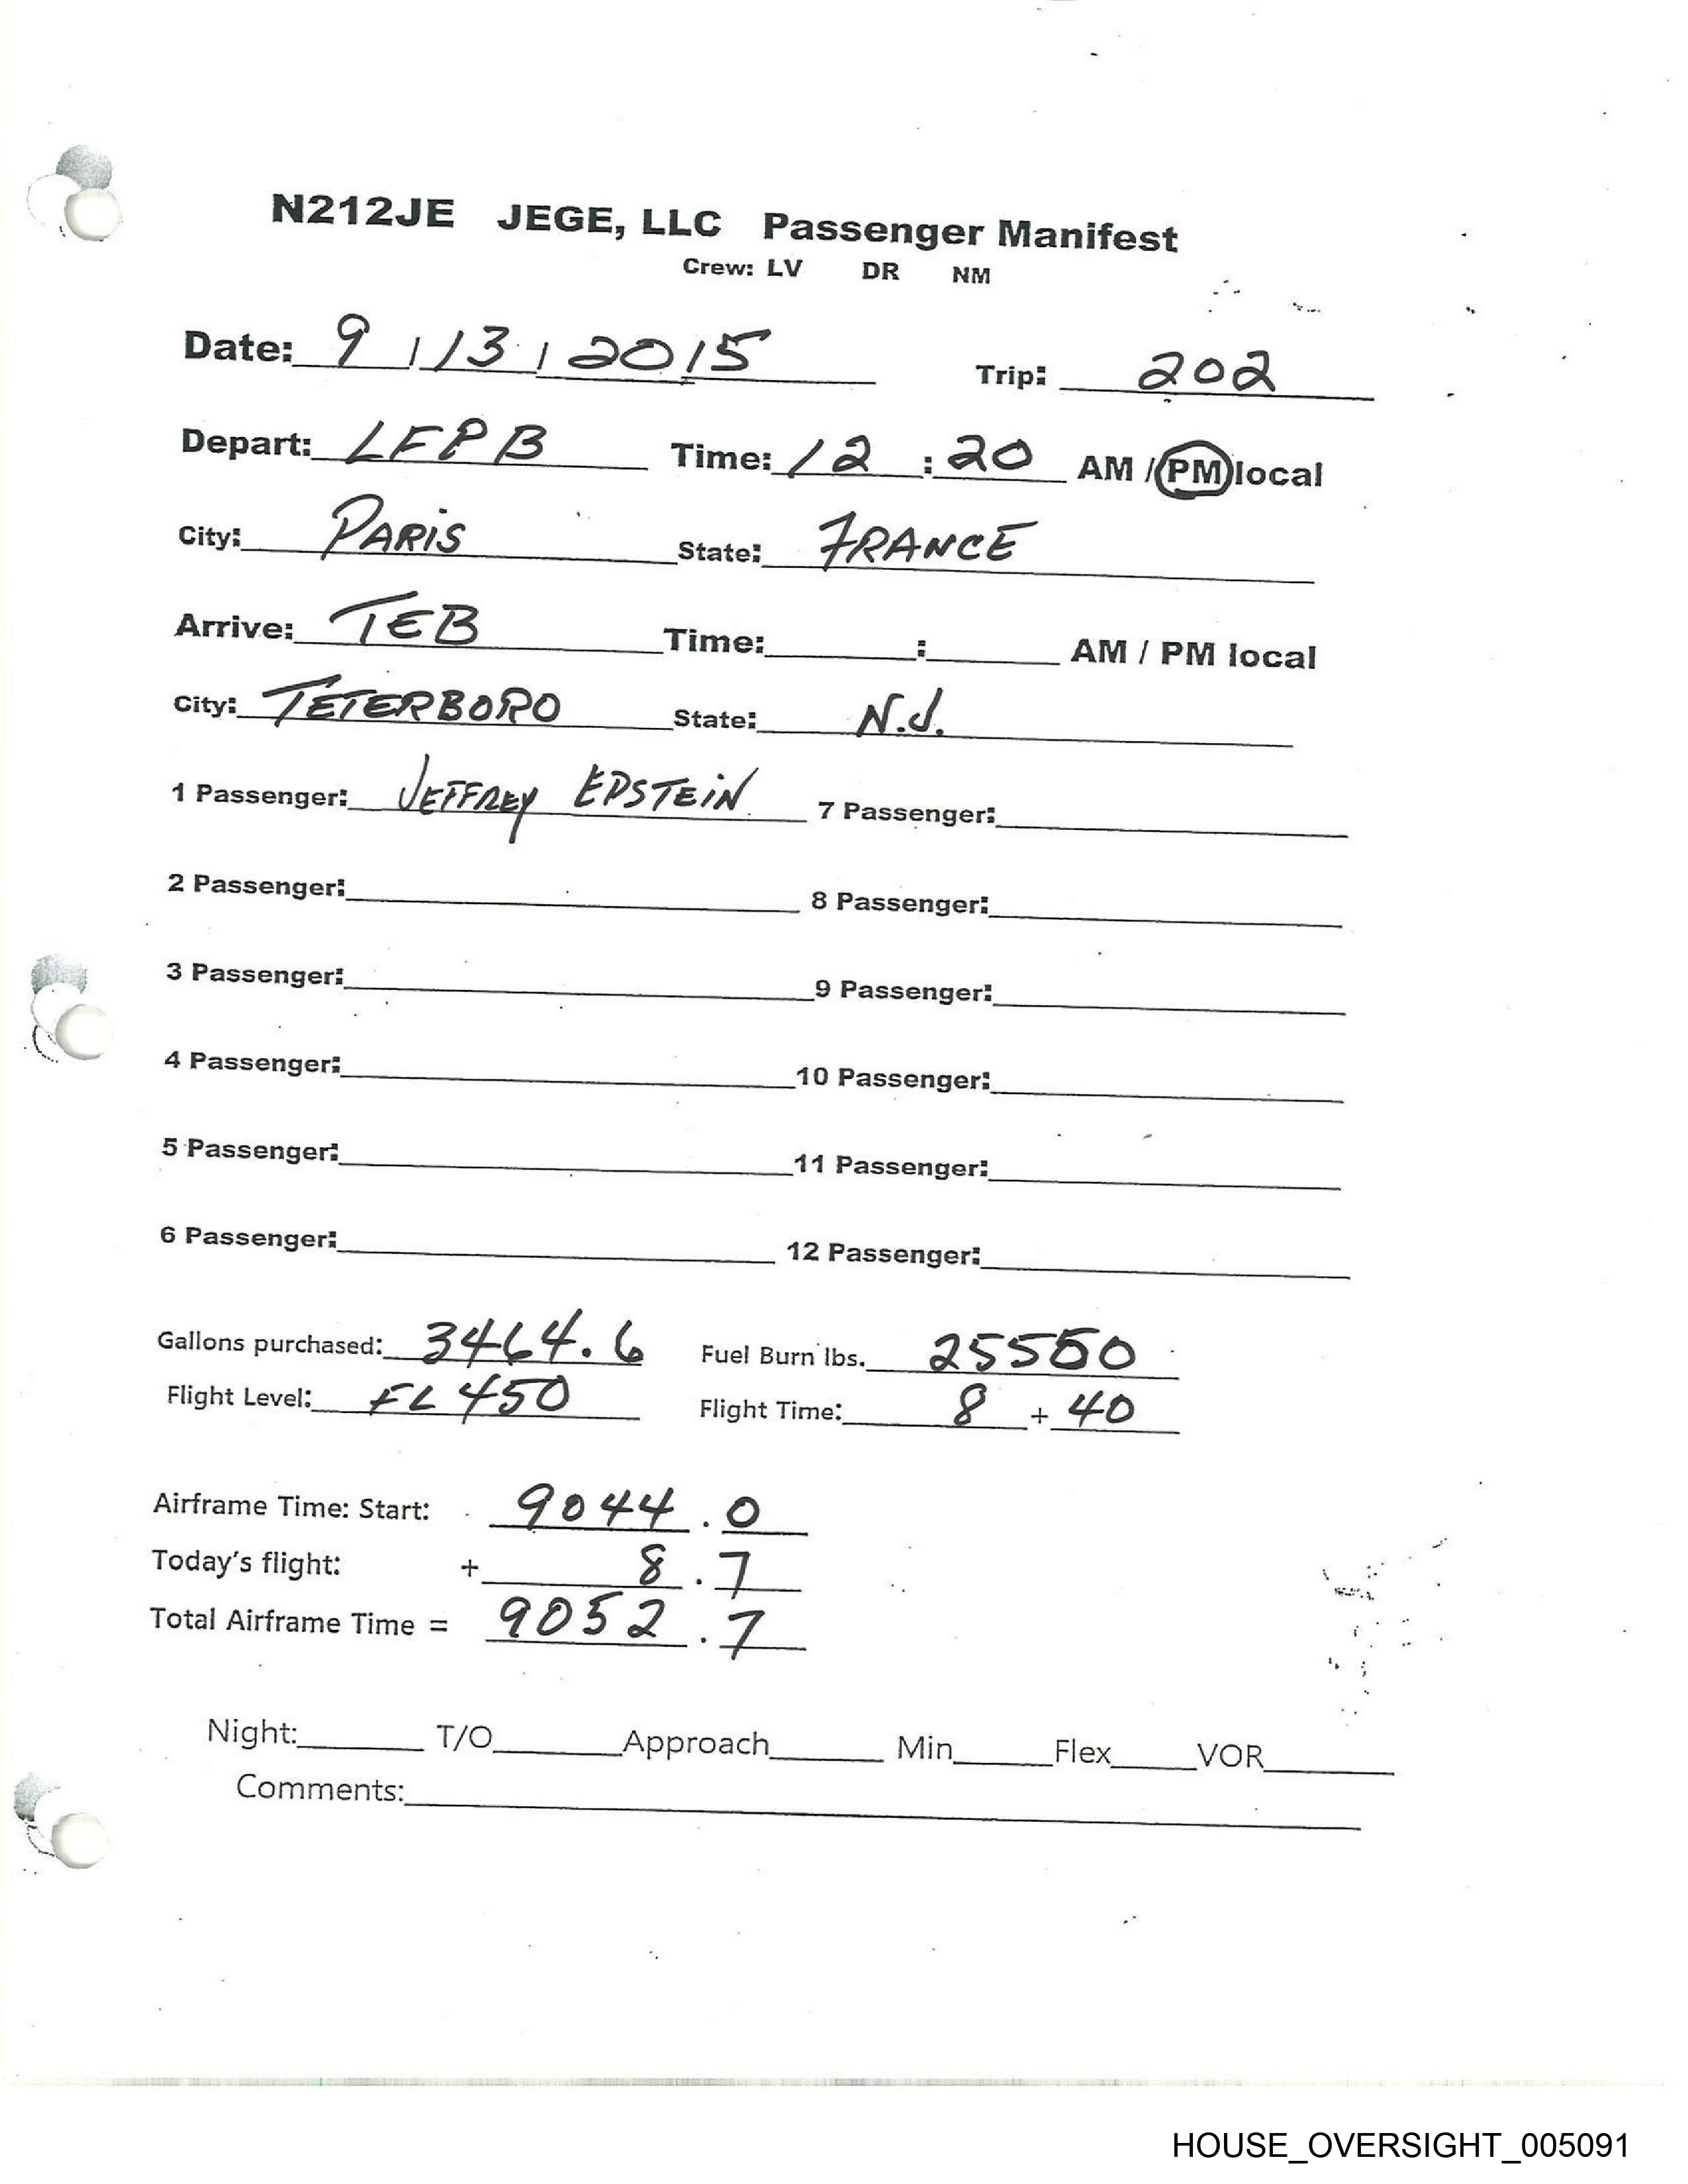 N212JE JEGE, LLC Passenger Manifest
Crew: LV DR NM
Date: 9 / 13 / 2015 Trip: 202
Depart: LFPB Time: 12 : 20 AM / PM local
City: PARIS State: FRANCE
Arrive: TEB Time: : AM / PM local
City: TETERBORO State: N.J.
1 Passenger: JEFFREY EPSTEIN 7 Passenger:
2 Passenger: 8 Passenger:
3 Passenger: 9 Passenger:
4 Passenger: 10 Passenger:
5 Passenger: 11 Passenger:
6 Passenger: 12 Passenger:
Gallons purchased: 3464.6 Fuel Burn lbs. 25550
Flight Level: FL 450 Flight Time: 8 + 40
Airframe Time: Start: 9044 . 0
Today's flight: + 8 . 7
Total Airframe Time = 9052 . 7
Night: T/O Approach Min Flex VOR
Comments:
HOUSE_OVERSIGHT_005091